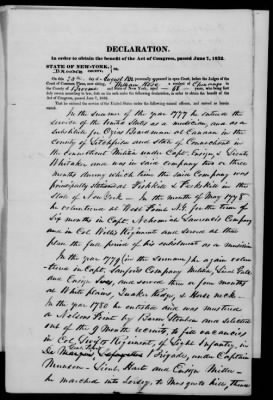 DECLARATION.
In order to obtain the benefit of the Act of Congress, passed June 7, 1832.
STATE OF NEW-YORK, ss.
BROOME COUNTY,
On this day of August 1832 personally appeared in open Court, before the Judges of the
Court of Common Pleas, now sitting, William a resident of
the County of Broome and State of New-York, aged 68 years, who being first
duly sworn according to law, doth on his oath make the following declaration, in order to obtain the benefit of the Act of
Congress, passed June 7, 1832.
That he entered the service of the United States under the following named officers, and served as herein
stated.
In the summer of the year 1777 he entered the
service of the United States as a musician, and as a
substitute for Ozias Boardman at Canaan in the
County of Litchfield and State of Connecticut in
the Connecticut Militia under Capt. Ensign, & Lieut.
Whitaker, and was in said company two or three
months during which time the said Company was
principally stationed at Fishkill & Peekskill in the
State of New York – In the month of May 1778
he volunteered at West Point N.Y. for the term of
six months in Capt. Nehemiah Lawrence's Company
and in Col. Willis Regiment and served at this
post the full period of his enlistment as a musician
In the year 1779 (in the summer) he again volun-
teered in Capt. Sanfords Company Militia, Lieut.
and Ensign Ives, and served three or four months
at White plains, Quaker Hedge, & Horse neck –
In the year 1780 he enlisted and was mustered
a Nelsons Point by Baron Steuben and selected
out of the 9 month recruits, to fill vacancies
in Col. Regiment, of Light Infantry, in
Brigade, under Captain
Munson – Lieut. Hart and Ensign Miller –
he marched into Jersey, to Musqueto hill, thence